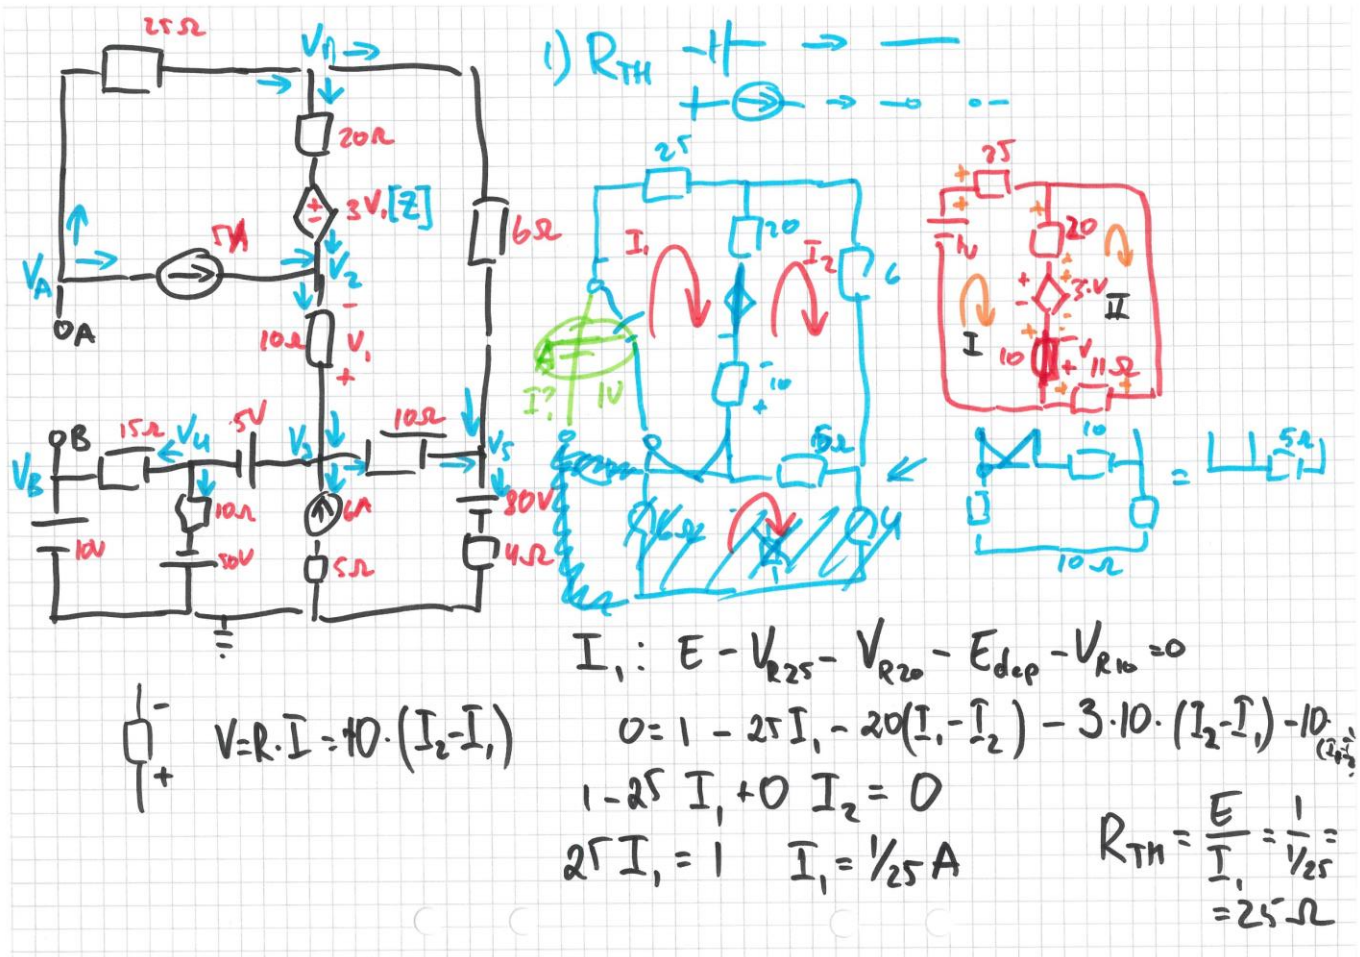 25Ω
V₁
1) R_TH
20Ω
3V₁[Z]
5A
6Ω
V_A
V₂
A
10Ω V₁
- +
B
15Ω V₄ 5V V₃ 10Ω V₅
V_B
10Ω 6A 80V
10V 50V 5Ω 4Ω
25
20
I₁ I₂
6
I? 1V
10
5Ω
4
25
1V 20
3V
I II
10 V 11Ω
10 = 5Ω
10Ω
I₁: E - V_R25 - V_R20 - E_dep - V_R10 = 0
V=R·I=10·(I₂-I₁)
0=1-25I₁-20(I₁-I₂)-3·10·(I₂-I₁)-10·
1-25 I₁+0 I₂=0
25I₁=1 I₁=1/25 A
R_TH=E/I₁=1/1/25=
=25Ω